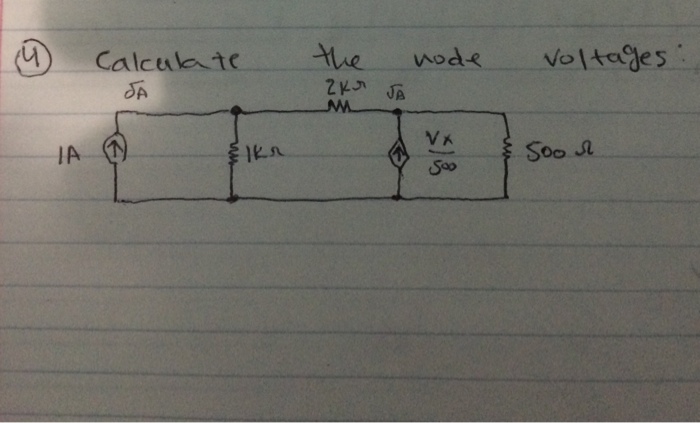 4 Calculate the node voltages:
2KΩ
JA JA
1A 1KΩ Vx/500 500 Ω